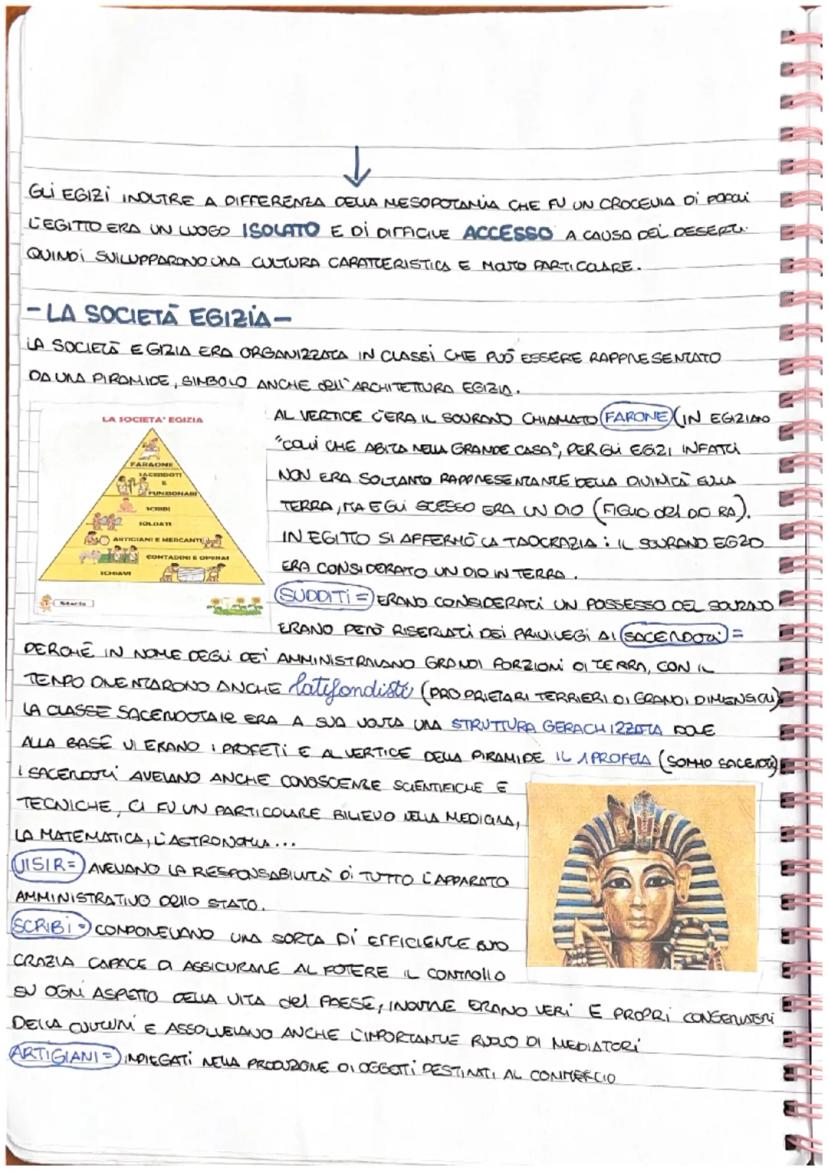 GLI EGIZI INOLTRE A DIFFERENZA DELLA MESOPOTAMIA CHE FU UN CROCEVIA DI POPOLI
L'EGITTO ERA UN LUOGO ISOLATO E DI DIFFICILE ACCESSO A CAUSA DEI DESERTI.
QUINDI SVILUPPARONO UNA CULTURA CARATTERISTICA E MOLTO PARTICOLARE.
- LA SOCIETÀ EGIZIA -
LA SOCIETÀ EGIZIA ERA ORGANIZZATA IN CLASSI CHE PUÒ ESSERE RAPPRESENTATO
DA UNA PIRAMIDE, SIMBOLO ANCHE DELL'ARCHITETTURA EGIZIA.
LA SOCIETA' EGIZIA
FARAONE
SACERDOTI
E
FUNZIONARI
SCRIBI
SOLDATI
ARTIGIANI E MERCANTI
CONTADINI E OPERAI
SCHIAVI
Storia
AL VERTICE C'ERA IL SOVRANO CHIAMATO FARONE (IN EGIZIANO
"COLUI CHE ABITA NELLA GRANDE CASA", PER GLI EGIZI INFATTI
NON ERA SOLTANTO RAPPRESENTANTE DELLA DIVINITÀ SULLA
TERRA, MA EGLI STESSO ERA UN DIO (FIGLIO DEL DIO RA).
IN EGITTO SI AFFERMÒ LA TAOCRAZIA: IL SOVRANO EGIZIO
ERA CONSIDERATO UN DIO IN TERRA.
SUDDITI = ERANO CONSIDERATI UN POSSESSO DEL SOVRANO
ERANO PERÒ RISERVATI DEI PRIVILEGI AI SACERDOTI =
PERCHÉ IN NOME DEGLI DEI AMMINISTRAVANO GRANDI PORZIONI DI TERRA, CON IL
TEMPO DIVENTARONO ANCHE latifondisti (PROPRIETARI TERRIERI DI GRANDI DIMENSIONI)
LA CLASSE SACERDOTALE ERA A SUA VOLTA UNA STRUTTURA GERACHIZZATA DOVE
ALLA BASE VI ERANO I PROFETI E AL VERTICE DELLA PIRAMIDE IL 1 PROFETA (SOMMO SACERDOTE)
I SACERDOTI AVEVANO ANCHE CONOSCENZE SCIENTIFICHE E
TECNICHE, CI FU UN PARTICOLARE RILIEVO NELLA MEDICINA,
LA MATEMATICA, L'ASTRONOMIA...
VISIR = AVEVANO LA RESPONSABILITÀ DI TUTTO L'APPARATO
AMMINISTRATIVO DELLO STATO.
SCRIBI = COMPONEVANO UNA SORTA DI EFFICIENTE BURO
CRAZIA CAPACE DI ASSICURARE AL POTERE IL CONTROLLO
SU OGNI ASPETTO DELLA VITA DEL PAESE, INOLTRE ERANO VERI E PROPRI CONSERVATORI
DELLA CULTURA E ASSOLVEVANO ANCHE L'IMPORTANTE RUOLO DI MEDIATORI
ARTIGIANI = IMPIEGATI NELLA PRODUZIONE DI OGGETTI DESTINATI AL COMMERCIO